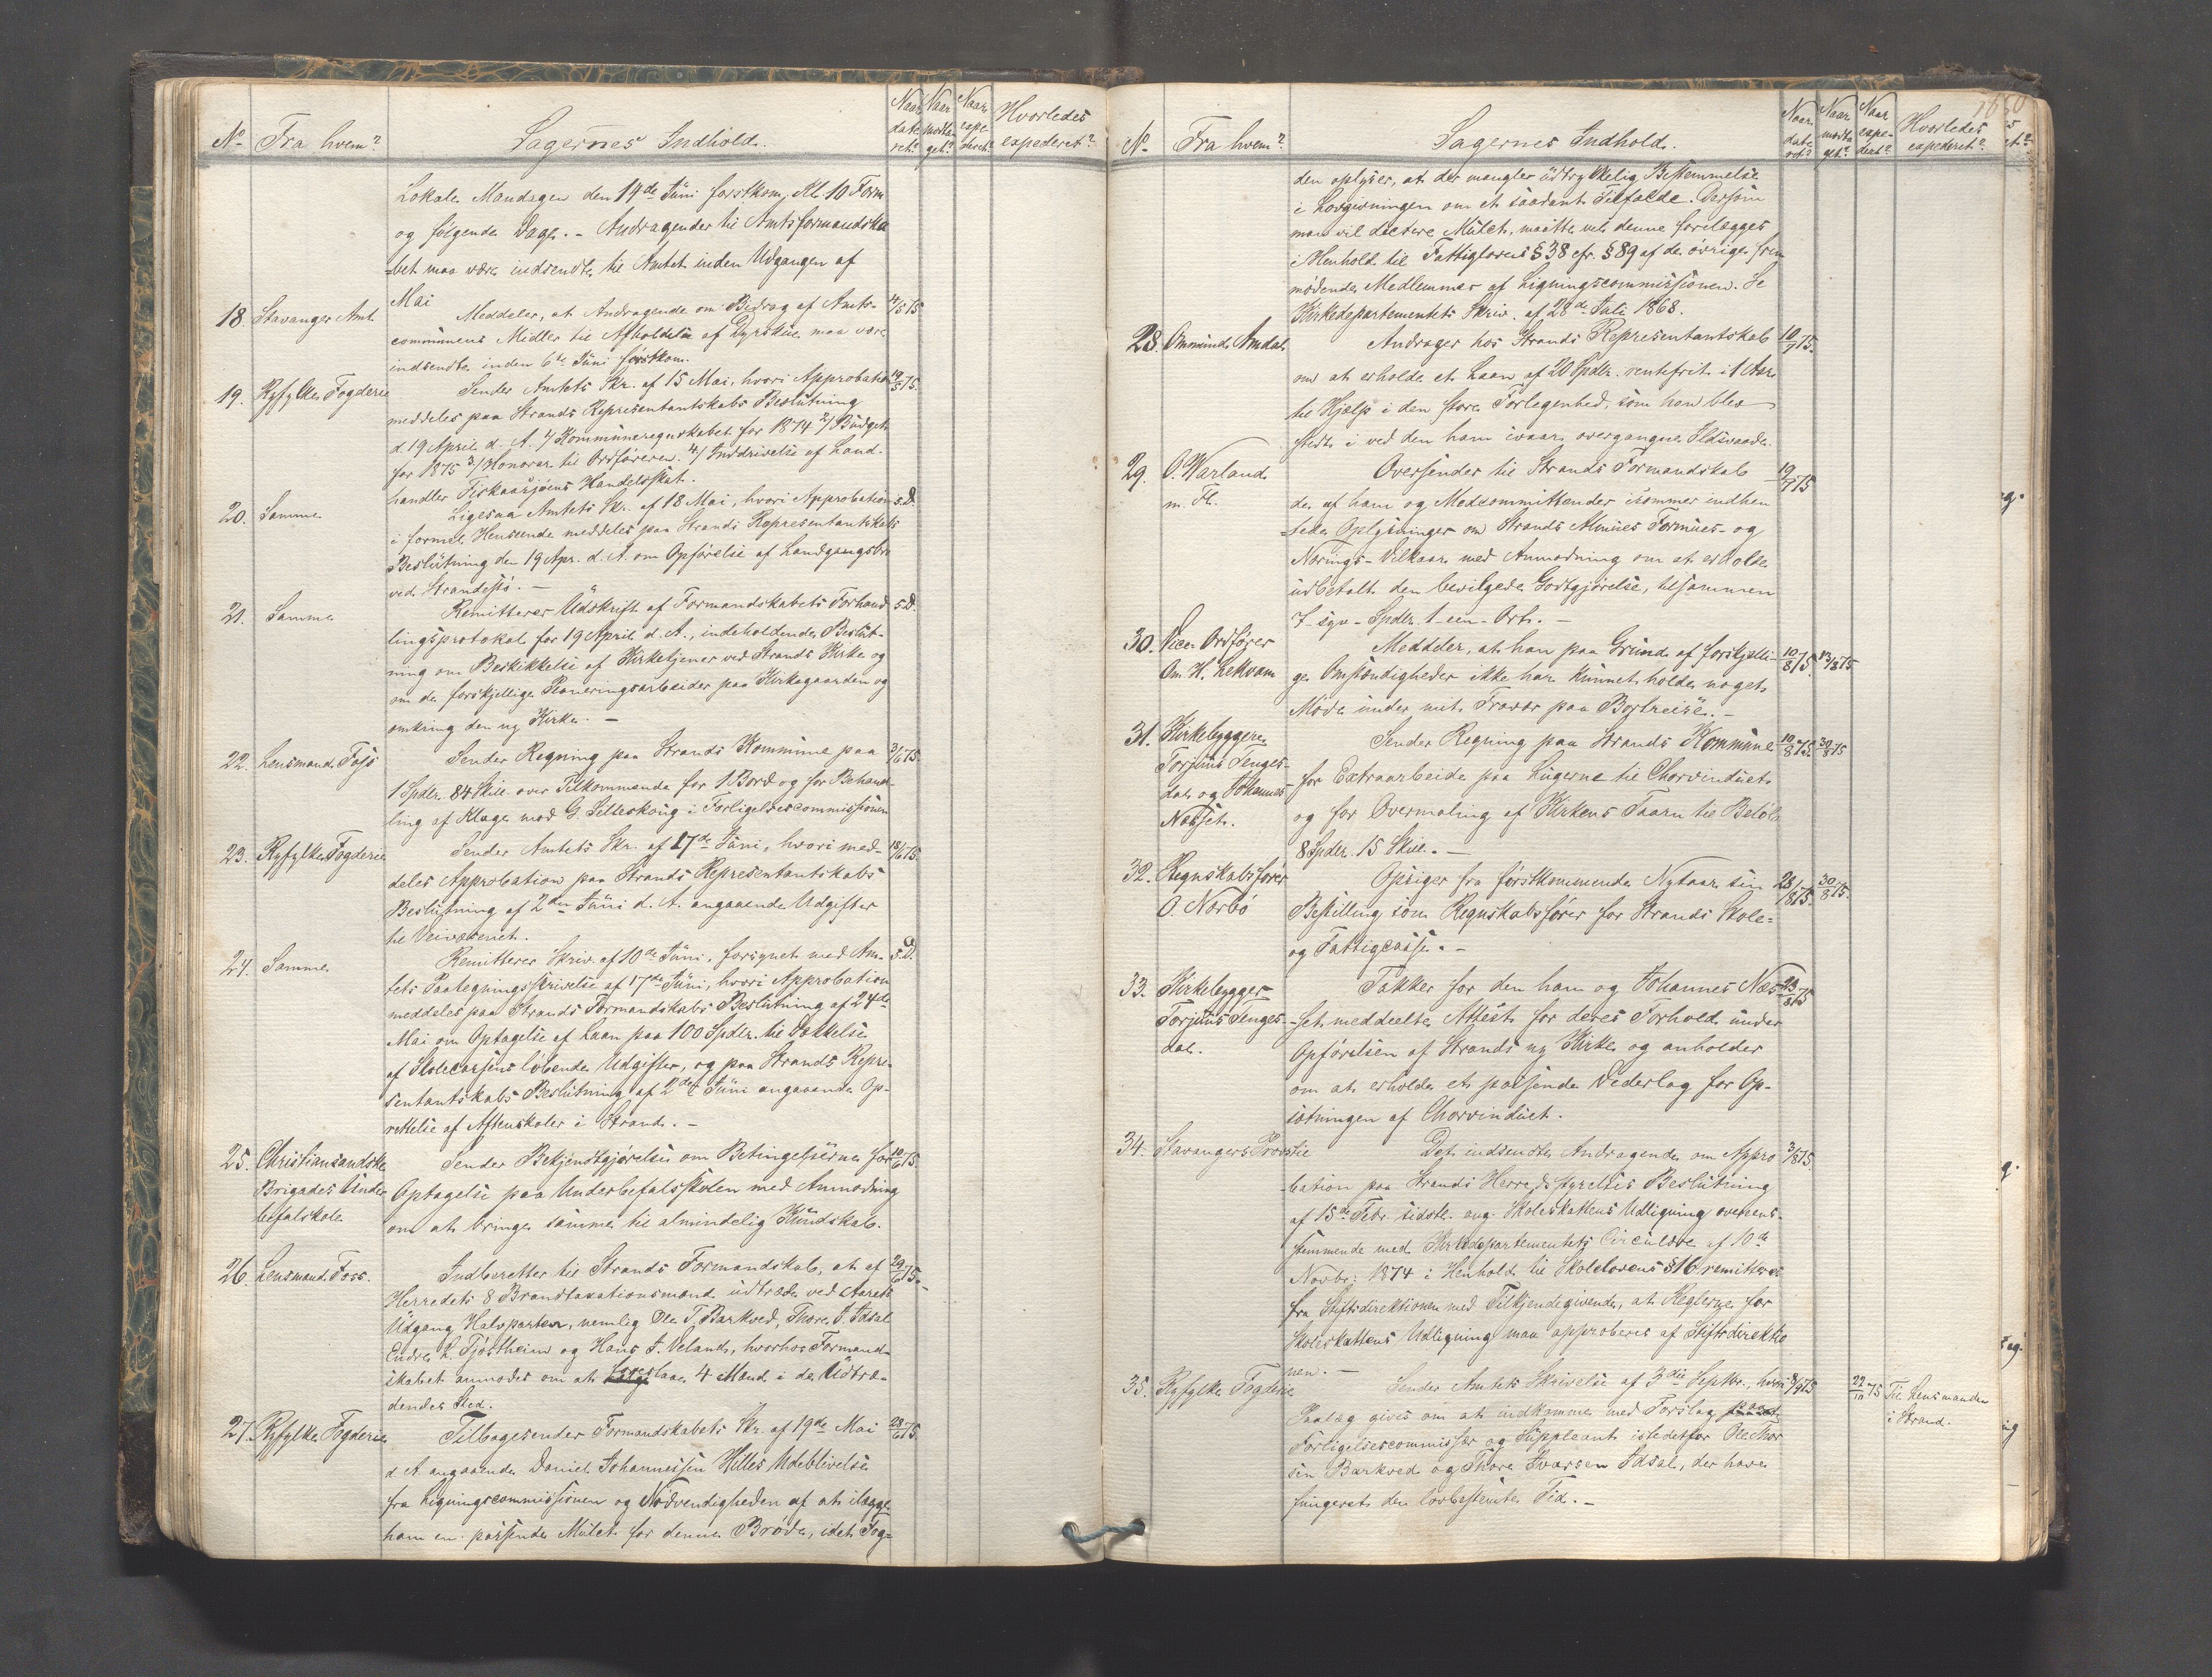 No Fra hvem? Sagernes Indhold. Naar dateret? Naar modtaget? Naar expederet? Hvorledes expederet?
Lokale Mandagen den 14de Juni førstkom. Kl. 10 Form
og følgende Dage. - Andragender til Amtsformandska
=bet maa være indsendte til Amtet inden Udgangen af
Mai
18. Stavanger Amt. Meddeler, at Andragende om Bidrag af Amts- 4/5 75
communens Midler til Afholdelse af Dyrskue maa være
indsendte inden 6te Juni førstkom.
19. Ryfylke Fogderie Sender Amtets Skr. af 15 Mai, hvori Approbation 19/5 75.
meddeles paa Strands Repræsentantskabs Beslutning
d. 19 April d. A. 1/ Kommuneregnskabet for 1874 2/ Budget
for 1875 3/ Honorar til Ordføreren. 4/ Inddrivelse af Land-
handler Fiskaasjøens Handelsskat.
20. Samme Ligesaa Amtets Skr. af 18 Mai, hvori Approbation s.D.
i formel Henseende meddeles paa Strands Repræsentantskabs
Beslutning den 19 Apr. d. A. om Opførelse af Landgangsbro
ved Strandesjø. -
21. Samme Remitterer Udskrift af Formandskabets Forhand s.D.
lingsprotokol for 19 April d. A., indeholdende Beslut-
ning om Beskikkelse af Kirketjener ved Strands Kirke og
om de forskjellige Planeringsarbeider paa Kirkegaarden og
omkring den ny Kirke. -
22. Lensmand Foss Sender Regning paa Strands Kommune paa 3/6 75.
1 Spdlr. 84 Skill. over Tilkommende for 1 Bord og for Behand-
ling af Klage mod G. Selleskoug i Forligelsescommissionen
23. Ryfylke Fogderie Sender Amtets Skr. af 17de Juni, hvori med- 18/6 75.
deles Approbation paa Strands Repræsentantskabs
Beslutning af 2den Juni d. A. angaaende Udgifter
til Veivæsenet.
24. Samme Remitterer Skriv. af 10de Juni, forsynet med Am- s.D.
tets Paategningsskrivelse af 17de Juni, hvori Approbation
meddeles paa Strands Formandskabs Beslutning af 24de
Mai om Optagelse af Laan paa 100 Spdlr. til Dækkelse
af Skolecassens løbende Udgifter, og paa Strands Repræ-
sentantskabs Beslutning af 2den Juni angaaende Op-
rettelse af Aftenskoler i Strand. -
25. Christiansandske Sender Bekjendtgjørelse om Betingelserne for 10/6 75
Brigades Under Optagelse paa Underbefalsskolen med Anmodning
befalskole om at bringe samme til almindelig Kundskab.
26. Lensmand Foss. Indberetter til Strands Formandskab, at af 29/6 75.
Herredets 8 Brandtaxationsmænd udtræde ved Aarets
Udgang Halvparten, nemlig Ole T. Barkved, Thore I. Idsal
Endre L. Tjøstheim og Hans J. Veland, hvorhos Formand-
skabet anmodes om at foreslaa 4 Mænd i de Udtræ-
dendes Sted.
27. Ryfylke Fogderie Tilbagesender Formandskabets Skr. af 19de Mai 28/6 75.
d. A. angaaende Daniel Johannessen Hilles Udeblivelse
fra Ligningscommissionen og Nødvendigheden af at ilægge
ham en passende Mulct for denne Brøde, idet Fog=
No Fra hvem? Sagernes Indhold. Naar dateret? Naar modtaget? Naar expederet? Hvorledes expederet?
den oplyser, at der mangler udtrykkelig Bestemmelse
i Lovgivningen om et saadant Tilfælde. Dersom
man vil dictere Mulct, maatte vel denne forelægges
i Henhold til Fattiglovens § 38 cfr. § 89 af de øvrige frem
mødende Medlemmer af Ligningscommissionen. Se
Kirkedepartementets Skriv. af 28de Juli 1868.
28. Ommund Amdal Andrager hos Strands Repræsentantskab 10/7 75.
om at erholde et Laan af 20 Spdlr. rentefrit i 1 Aar
til Hjælp i den store Forlegenhed, som han blev
stedt i ved den ham ivaar overgangne Ildsvaade.
29. O. Warland Oversender til Strands Formandskab 19/7 75
m. Fl. de af ham og Medcommitterede isommer indhen
=tede Oplysninger om Strands Almues Formues- og
Nærings-Vilkaar med Anmodning om at erholde
udbetalt den bevilgede Godtgjørelse, tilsammen
7 - syv - Spdlr. 1 - een - Ort. -
30. Vice Ordfører Meddeler, at han paa Grund af forskjelli- 10/8 75. 13/8 75
Om. H. Lekvam ge Omstændigheder ikke har kunnet holde noget
Møde under mit Fravær paa Bortreise. -
31. Kirkebyggere Sender Regning paa Strands Kommune 10/8 75. 30/8 75
Torjuus Tenges- for Extraarbeide paa Lugerne til Chorvinduet
dal og Johannes og for Overmaling af Kirkens Taarn til Beløb
Næsset. 8 Spdlr. 15 Skill. -
32. Regnskabsfører Opsiger fra førstkommende Nytaar sin 28/8 75. 30/8 75.
O. Norbø Bestilling som Regnskabsfører for Strands Skole-
og Fattigcasse. -
33. Kirkebygger Takker for den ham og Johannes Næs- 23/8 75
Torjuus Tenges- -set meddeelte Attest for deres Forhold under
dal. Opførelsen af Strands ny Kirke og anholder
om at erholde et passende Vederlag for Op-
sætningen af Chorvinduet.
34. Stavangers Provstie Det indsendte Andragende om Appro 3/8 75.
-bation paa Strands Herredsstyrelses Beslutning
af 15de Febr. sidstl. ang. Skoleskattens Udligning overens-
stemmende med Kirkedepartementets Circulære af 10de
Novbr. 1874 i Henhold til Skolelovens § 16 remitteres
fra Stiftsdirektionen med Tilkjendegivende, at Reglerne for
Skoleskattens Udligning maa approberes af Stiftsdirektio
nen. -
35. Ryfylke Fogderie Sender Amtets Skrivelse af 3die Septbr., hvori 8/9 75 22/10 75 Til Lensmanden
Paalæg gives om at indkomme med Forslag i Strand.
Forligelsescommissær og Suppleant istedetfor Ole Thor
sen Barkved og Thore Ivarsen Idsal, der have
fungeret den lovbestemte Tid. -